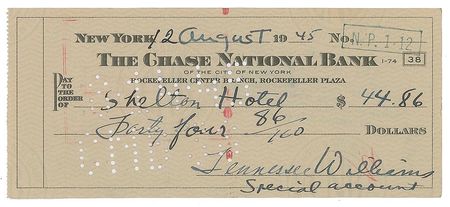 NEW YORK 12 August 1945 No. N.P. 1-12
THE CHASE NATIONAL BANK 1-74 38
OF THE CITY OF NEW YORK
ROCKEFELLER CENTER BRANCH, ROCKEFELLER PLAZA
PAY TO THE ORDER OF Shelton Hotel $ 44.86
Forty four 86/100 DOLLARS
Tennessee Williams
Special account